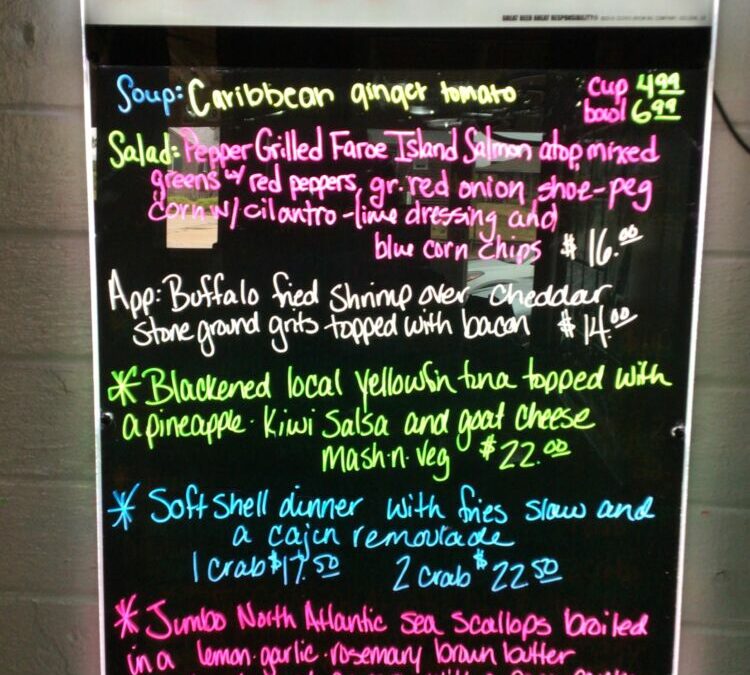 GREAT BEER GREAT RESPONSIBILITY®
Soup: Caribbean ginger tomato cup 4.99
bowl 6.99
Salad: Pepper Grilled Faroe Island Salmon atop mixed
greens w/ red peppers, gr. red onion, shoe-peg
corn w/ cilantro-lime dressing and
blue corn chips $16.00
App: Buffalo fried Shrimp over cheddar
stone ground grits topped with bacon $14.00
* Blackened local yellowfin tuna topped with
a pineapple·kiwi salsa and goat cheese
mash·n·veg $22.00
* Soft shell dinner with fries slaw and
a cajun remoulade
1 crab $17.50 2 crab $22.50
* Jumbo North Atlantic sea scallops broiled
in a lemon·garlic·rosemary brown butter